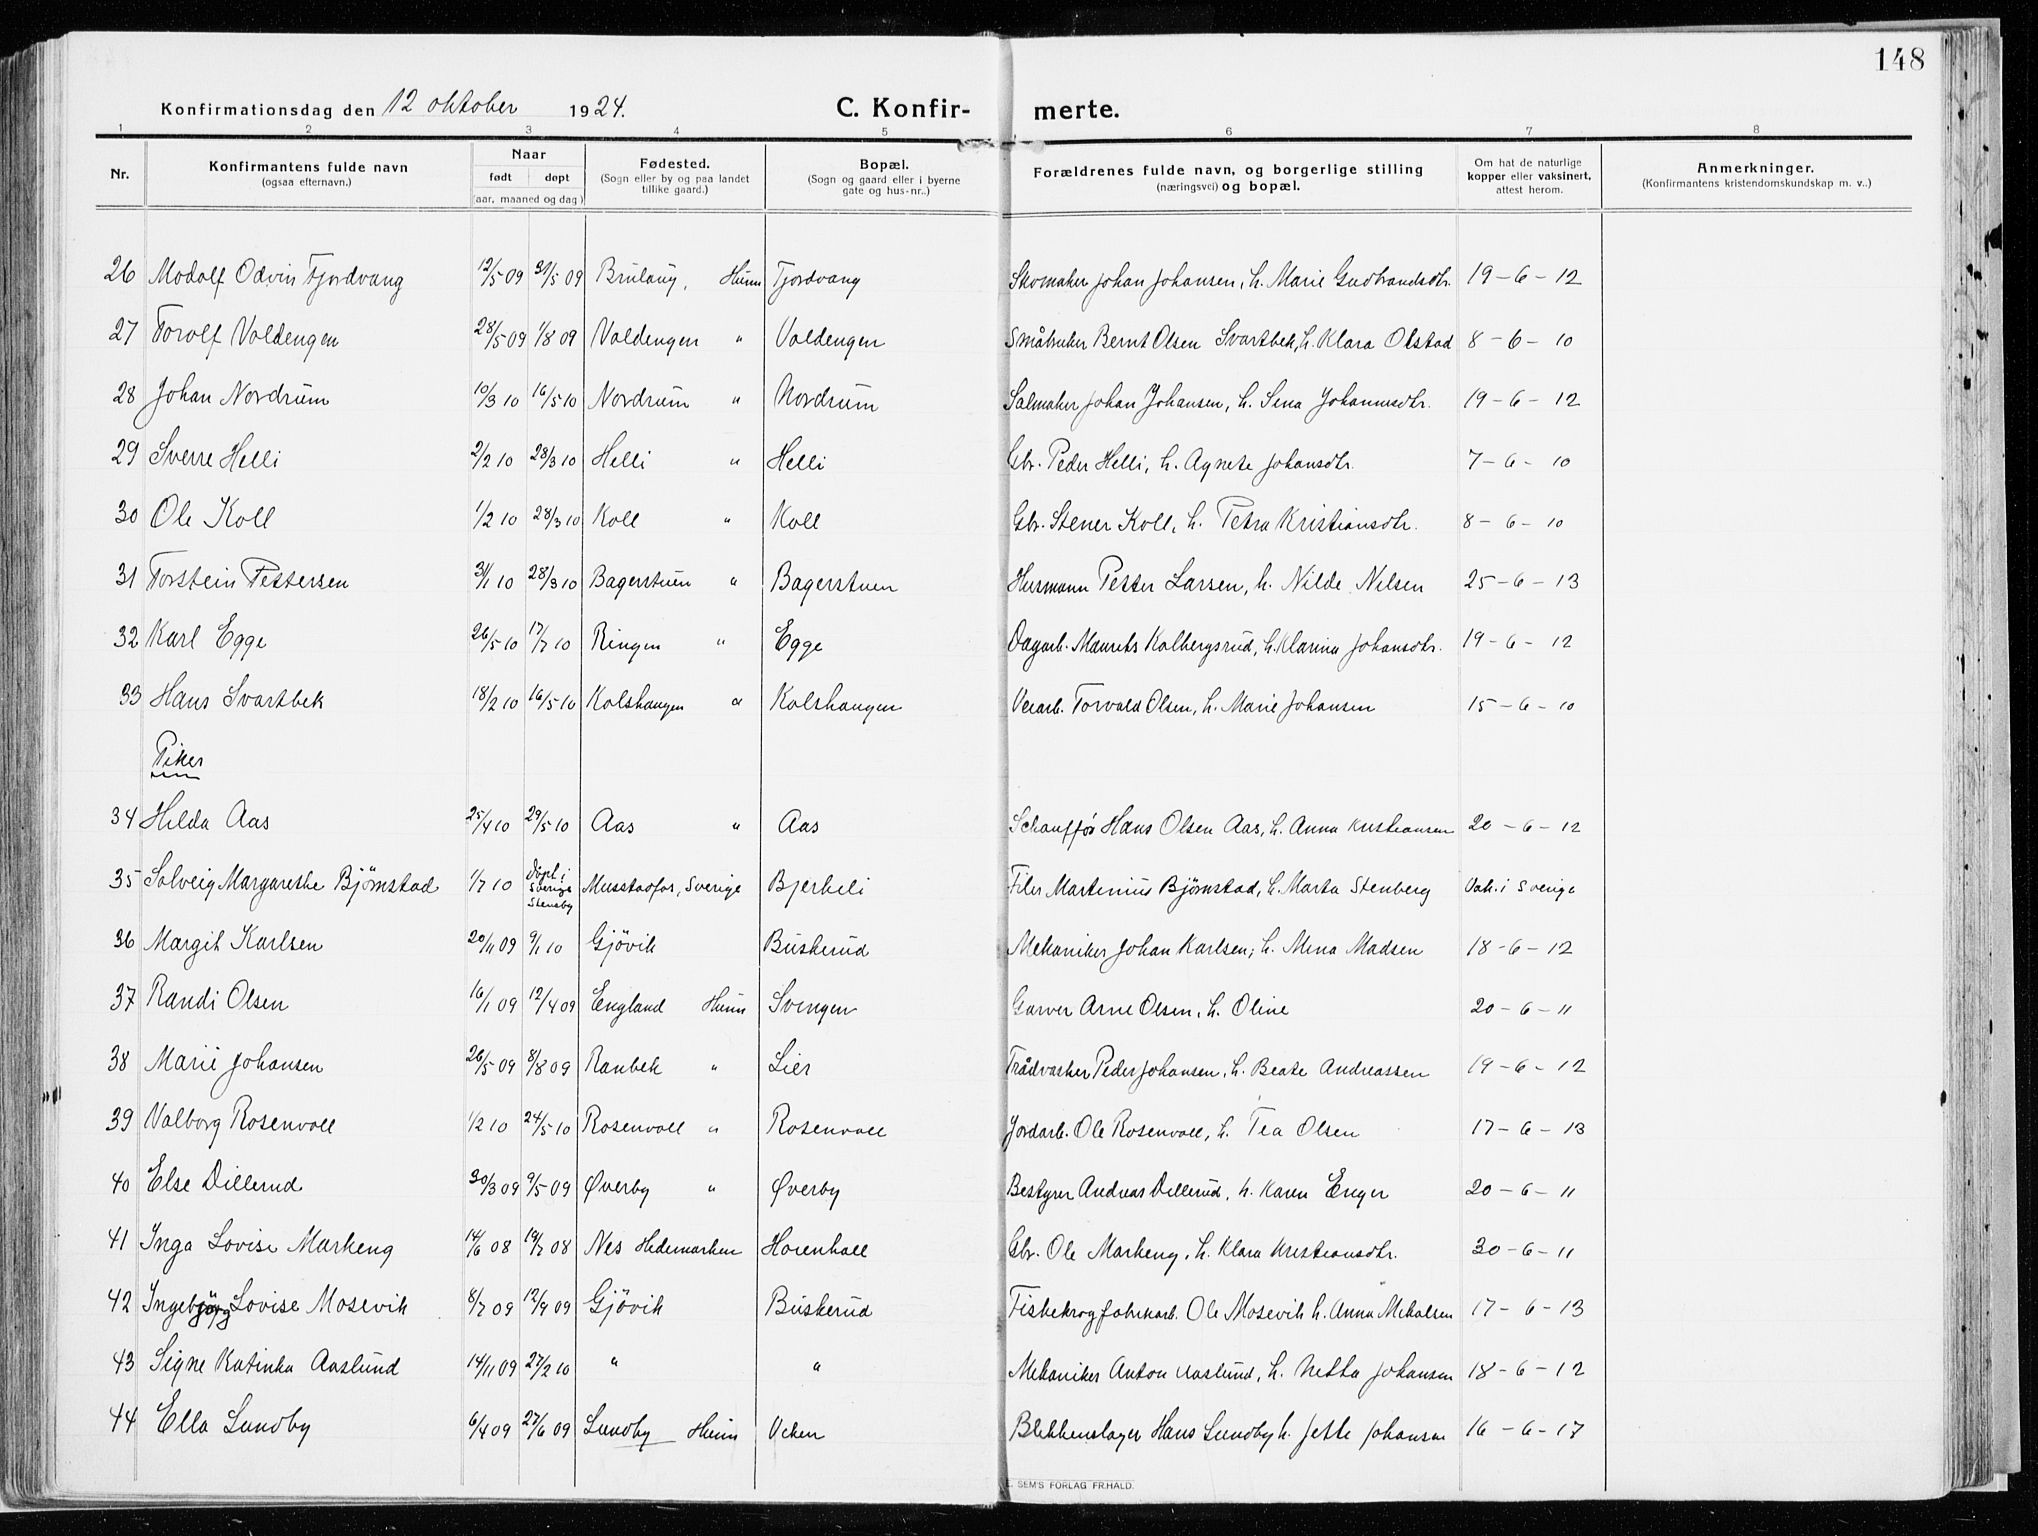 148
Konfirmationsdag den 12 oktober 1924. C. Konfir- merte.
1 2 3 4 5 6 7 8
Nr. Konfirmantens fulde navn (ogsaa efternavn.) Naar født døpt (aar, maaned og dag) Fødested. (Sogn eller by og paa landet tillike gaard.) Bopæl. (Sogn og gaard eller i byerne gate og hus-nr..) Forældrenes fulde navn, og borgerlige stilling (næringsvei) og bopæl. Om hat de naturlige kopper eller vaksinert, attest herom. Anmerkninger. (Konfirmantens kristendomskundskap m. v..)
26 Modolf Odvin Fjordvang 12/5 09 31/5 09 Brulaug, Hunn Fjordvang Skomaker Johan Johansen, h. Marie Gudbrandsdtr. 19-6-12
27 Torolf Voldengen 28/5 09 1/8 09 Voldengen " Voldengen Småbruker Bernt Olsen Svartbek, h. Klara Olstad 8-6-10
28 Johan Nordrum 10/3 10 16/5 10 Nordrum " Nordrum Salmaker Johan Johansen, h. Sina Johannesdtr. 19-6-12
29 Sverre Helli 2/2 10 28/3 10 Helli " Helli Gbr. Peder Helli, h. Agnete Johansdtr. 7-6-10
30 Ole Koll 1/2 10 28/3 10 Koll " Koll Gbr. Stener Koll, h. Petra Kristiansdtr. 8-6-10
31 Torstein Pettersen 31/1 10 28/3 10 Bagerstuen " Bagerstuen Husmann Petter Larsen, h. Nilde Nilsen 25-6-13
32 Karl Egge 26/5 10 17/7 10 Ringen " Egge Dagarb. Maurits Kolbergsrud, h. Klarina Johansdtr. 19-6-12
33 Hans Svartbek 18/2 10 16/5 10 Kolshaugen " Kolshaugen Veiarb. Torvald Olsen, h. Marie Johansen 15-6-10
Piker
34 Hilda Aas 25/4 10 29/5 10 Aas " Aas Schauffør Hans Olsen Aas, h. Anna Kristiansen 20-6-12
35 Solveig Margarethe Bjørnstad 1/7 10 Døpt i Sverige Steneby Musstadfor, Sverige Bjerkeli Filer Martinius Bjørnstad, h. Marta Stenberg Vak. i Sverige
36 Margit Karlsen 20/11 09 9/1 10 Gjövik Buskerud Mekaniker Johan Karlsen, h. Mina Madsen 18-6-12
37 Randi Olsen 16/1 09 12/4 09 England Hunn Svingen Garver Arne Olsen, h. Oline 20-6-11
38 Marie Johansen 26/5 09 8/8 09 Raubek " Lier Trådvasker Peder Johansen, h. Beate Andreassen 19-6-12
39 Valborg Rosenvoll 1/2 10 24/5 10 Rosenvoll " Rosenvoll Jordarb. Ole Rosenvoll, h. Tea Olsen 17-6-13
40 Else Dillerud 30/3 09 9/5 09 Øverby " Øverby Bestyrer Andreas Dillerud, h. Karen Enger 20-6-11
41 Inga Lovise Markeng 14/6 08 19/7 08 Nes Hedemarken Hovenhall Gbr. Ole Markeng, h. Klara Kristiansdtr. 30-6-11
42 Ingebjörg Lovise Mosevik 8/7 09 12/9 09 Gjövik Buskerud Fiskekrogfabrikarb. Ole Mosevik h. Anna Mikalsen 17-6-13
43 Signe Katinka Aaslund 14/11 09 27/2 10 " " Mekaniker Anton Aaslund, h. Netta Johansen 18-6-12
44 Ella Lundby 6/4 09 27/6 09 Lundby Hunn Viken Blikkenslager Hans Lundby h. Jette Johansen 16-6-17
SEM'S FORLAG FR.HALD.